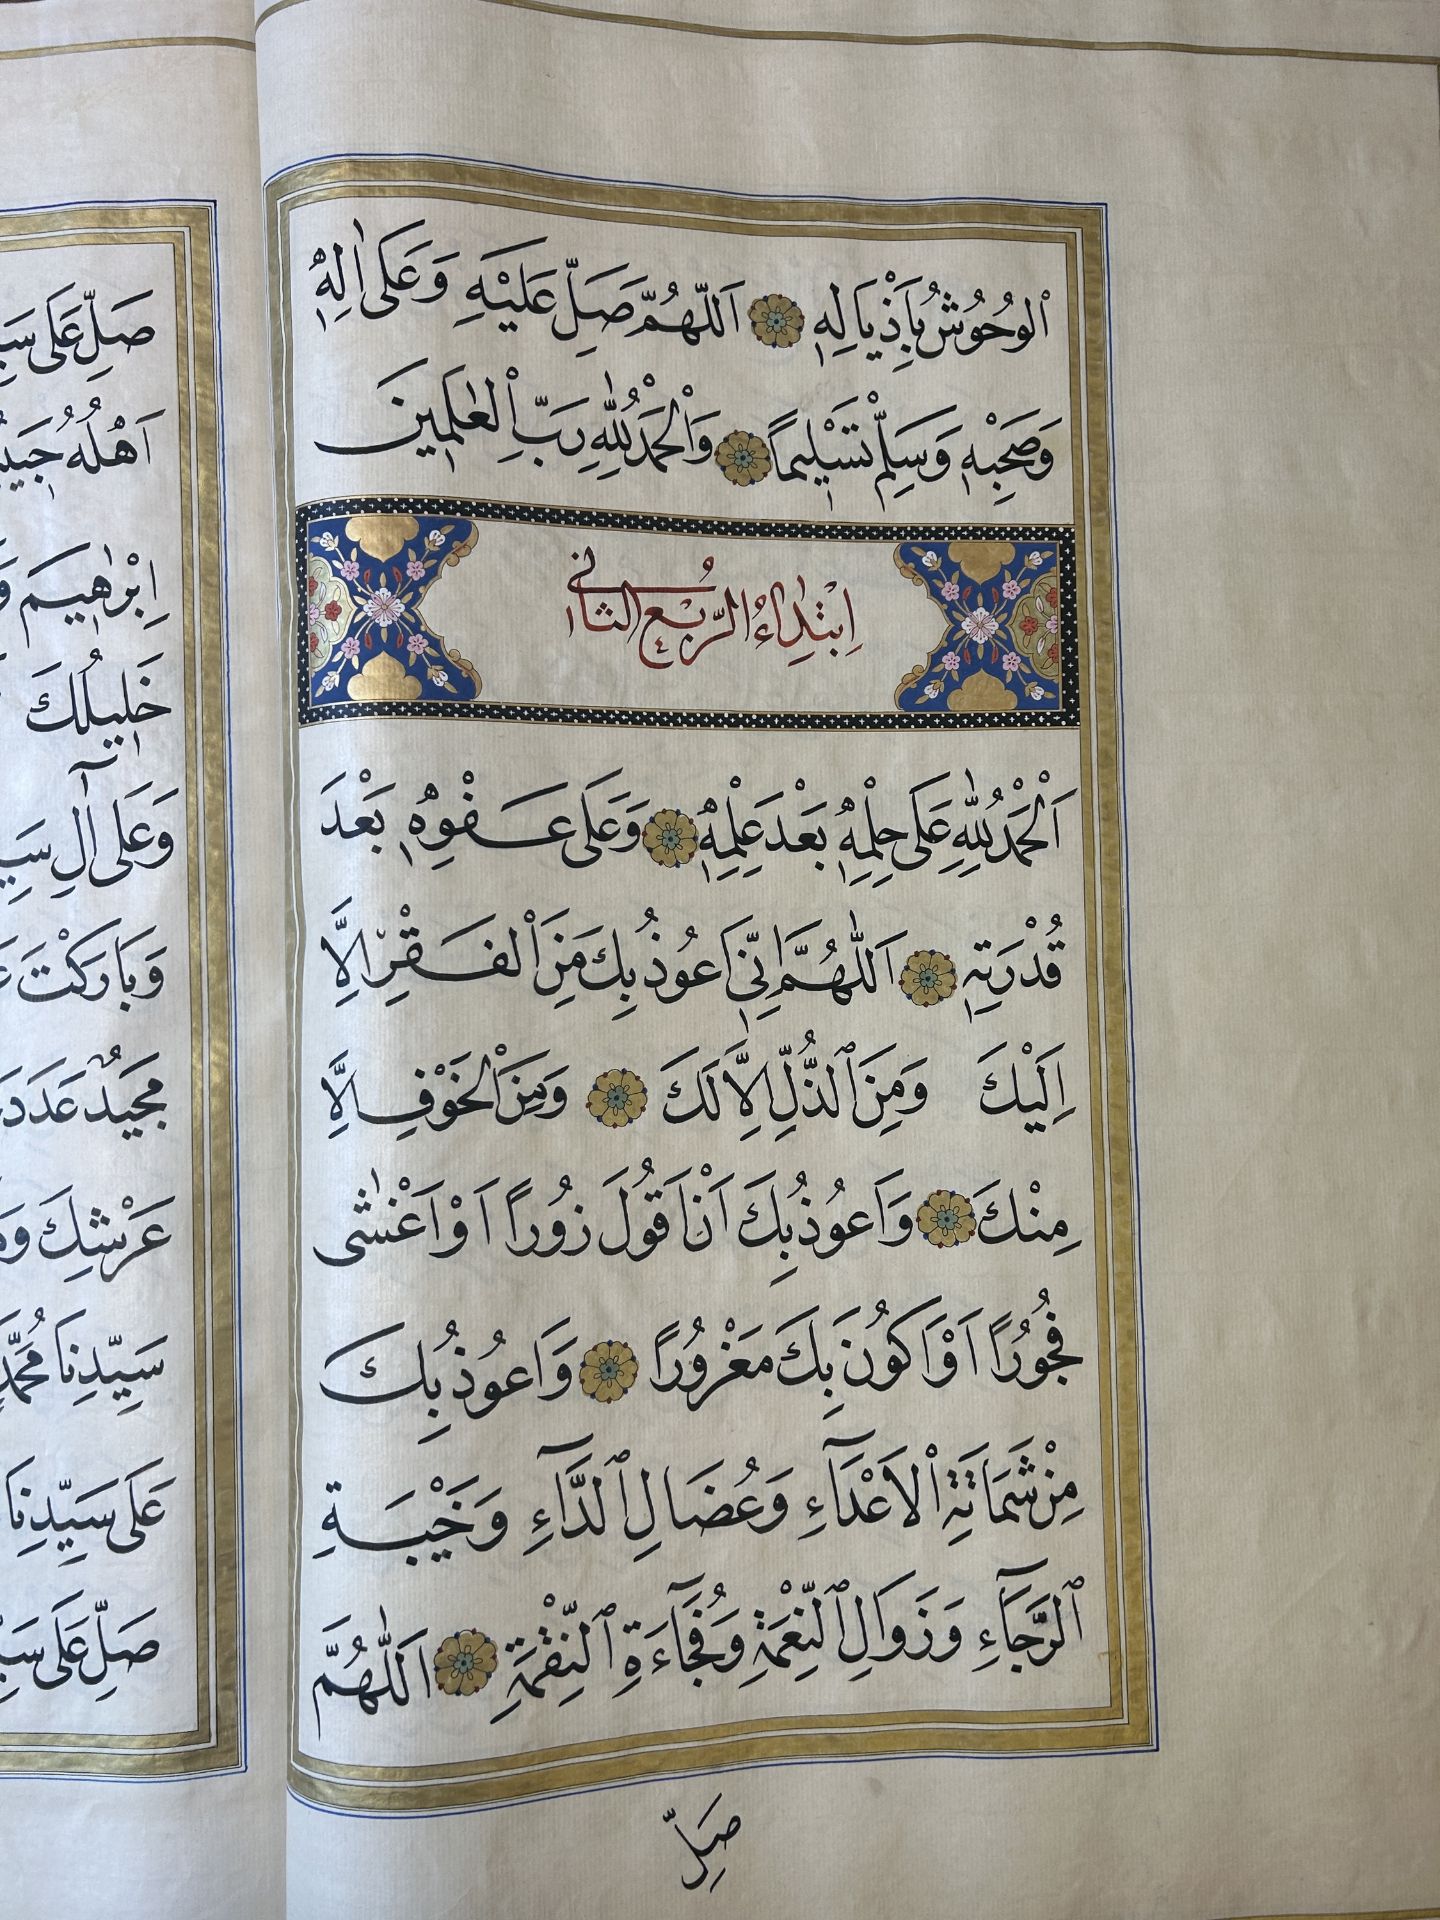 اْلوُحُوْشُ بِاَذْيَالِهِ اَللّٰهُمَّ صَلِّ عَلَيْهِ وَعَلٰى اٰلِهِ
وَصَحْبِهِ وَسَلِّمْ تَسْلِيمًا وَاْلحَمْدُ لِلّٰهِ رَبِّ اْلعٰلَمِينَ
اِبْتِدَاءُ الرُّبْعِ الثَّانِى
اَلْحَمْدُ لِلّٰهِ عَلَى حِلْمِهِ بَعْدَ عِلْمِهِ وَعَلَى عَفْوِهِ بَعْدَ
قُدْرَتِهِ اَللّٰهُمَّ اِنِّى اَعُوذُ بِكَ مِنَ اْلفَقْرِ اِلَّا
اِلَيْكَ وَمِنَ الذُّلِّ اِلَّا لَكَ وَمِنَ اْلخَوْفِ اِلَّا
مِنْكَ وَاَعُوذُ بِكَ اَنْ اَقُولَ زُورًا اَوْ اَغْشٰى
فُجُورًا اَوْ اَكُونَ بِكَ مَغْرُورًا وَاَعُوذُ بِكَ
مِنْ شَمَاتَةِ اْلاَعْدَآءِ وَعُضَالِ الدَّآءِ وَخَيْبَةِ
الرَّجَآءِ وَزَوَالِ النِّعْمَةِ وَفُجَآءَةِ النِّقْمَةِ اَللّٰهُمَّ
صَلِّ
صَلِّ عَلَى
اَهْلُهُ
اِبْرٰهِيمَ
خَلِيلِكَ
وَعَلَى اٰلِ
وَبَارَكْتَ
مَجِيدٌ عَدَدَ
عَرْشِكَ
سَيِّدِنَا مُحَمَّدٍ
عَلَى سَيِّدِنَا
صَلِّ عَلَى